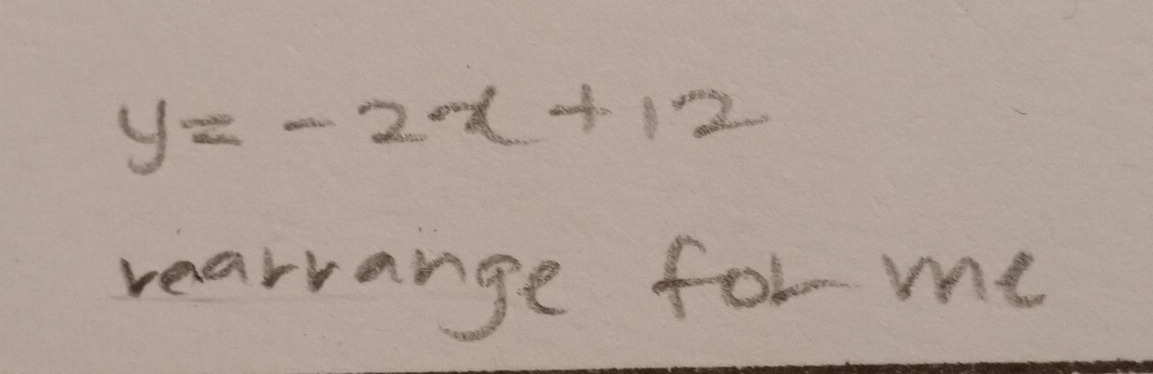 y = -2x + 12
rearrange for me